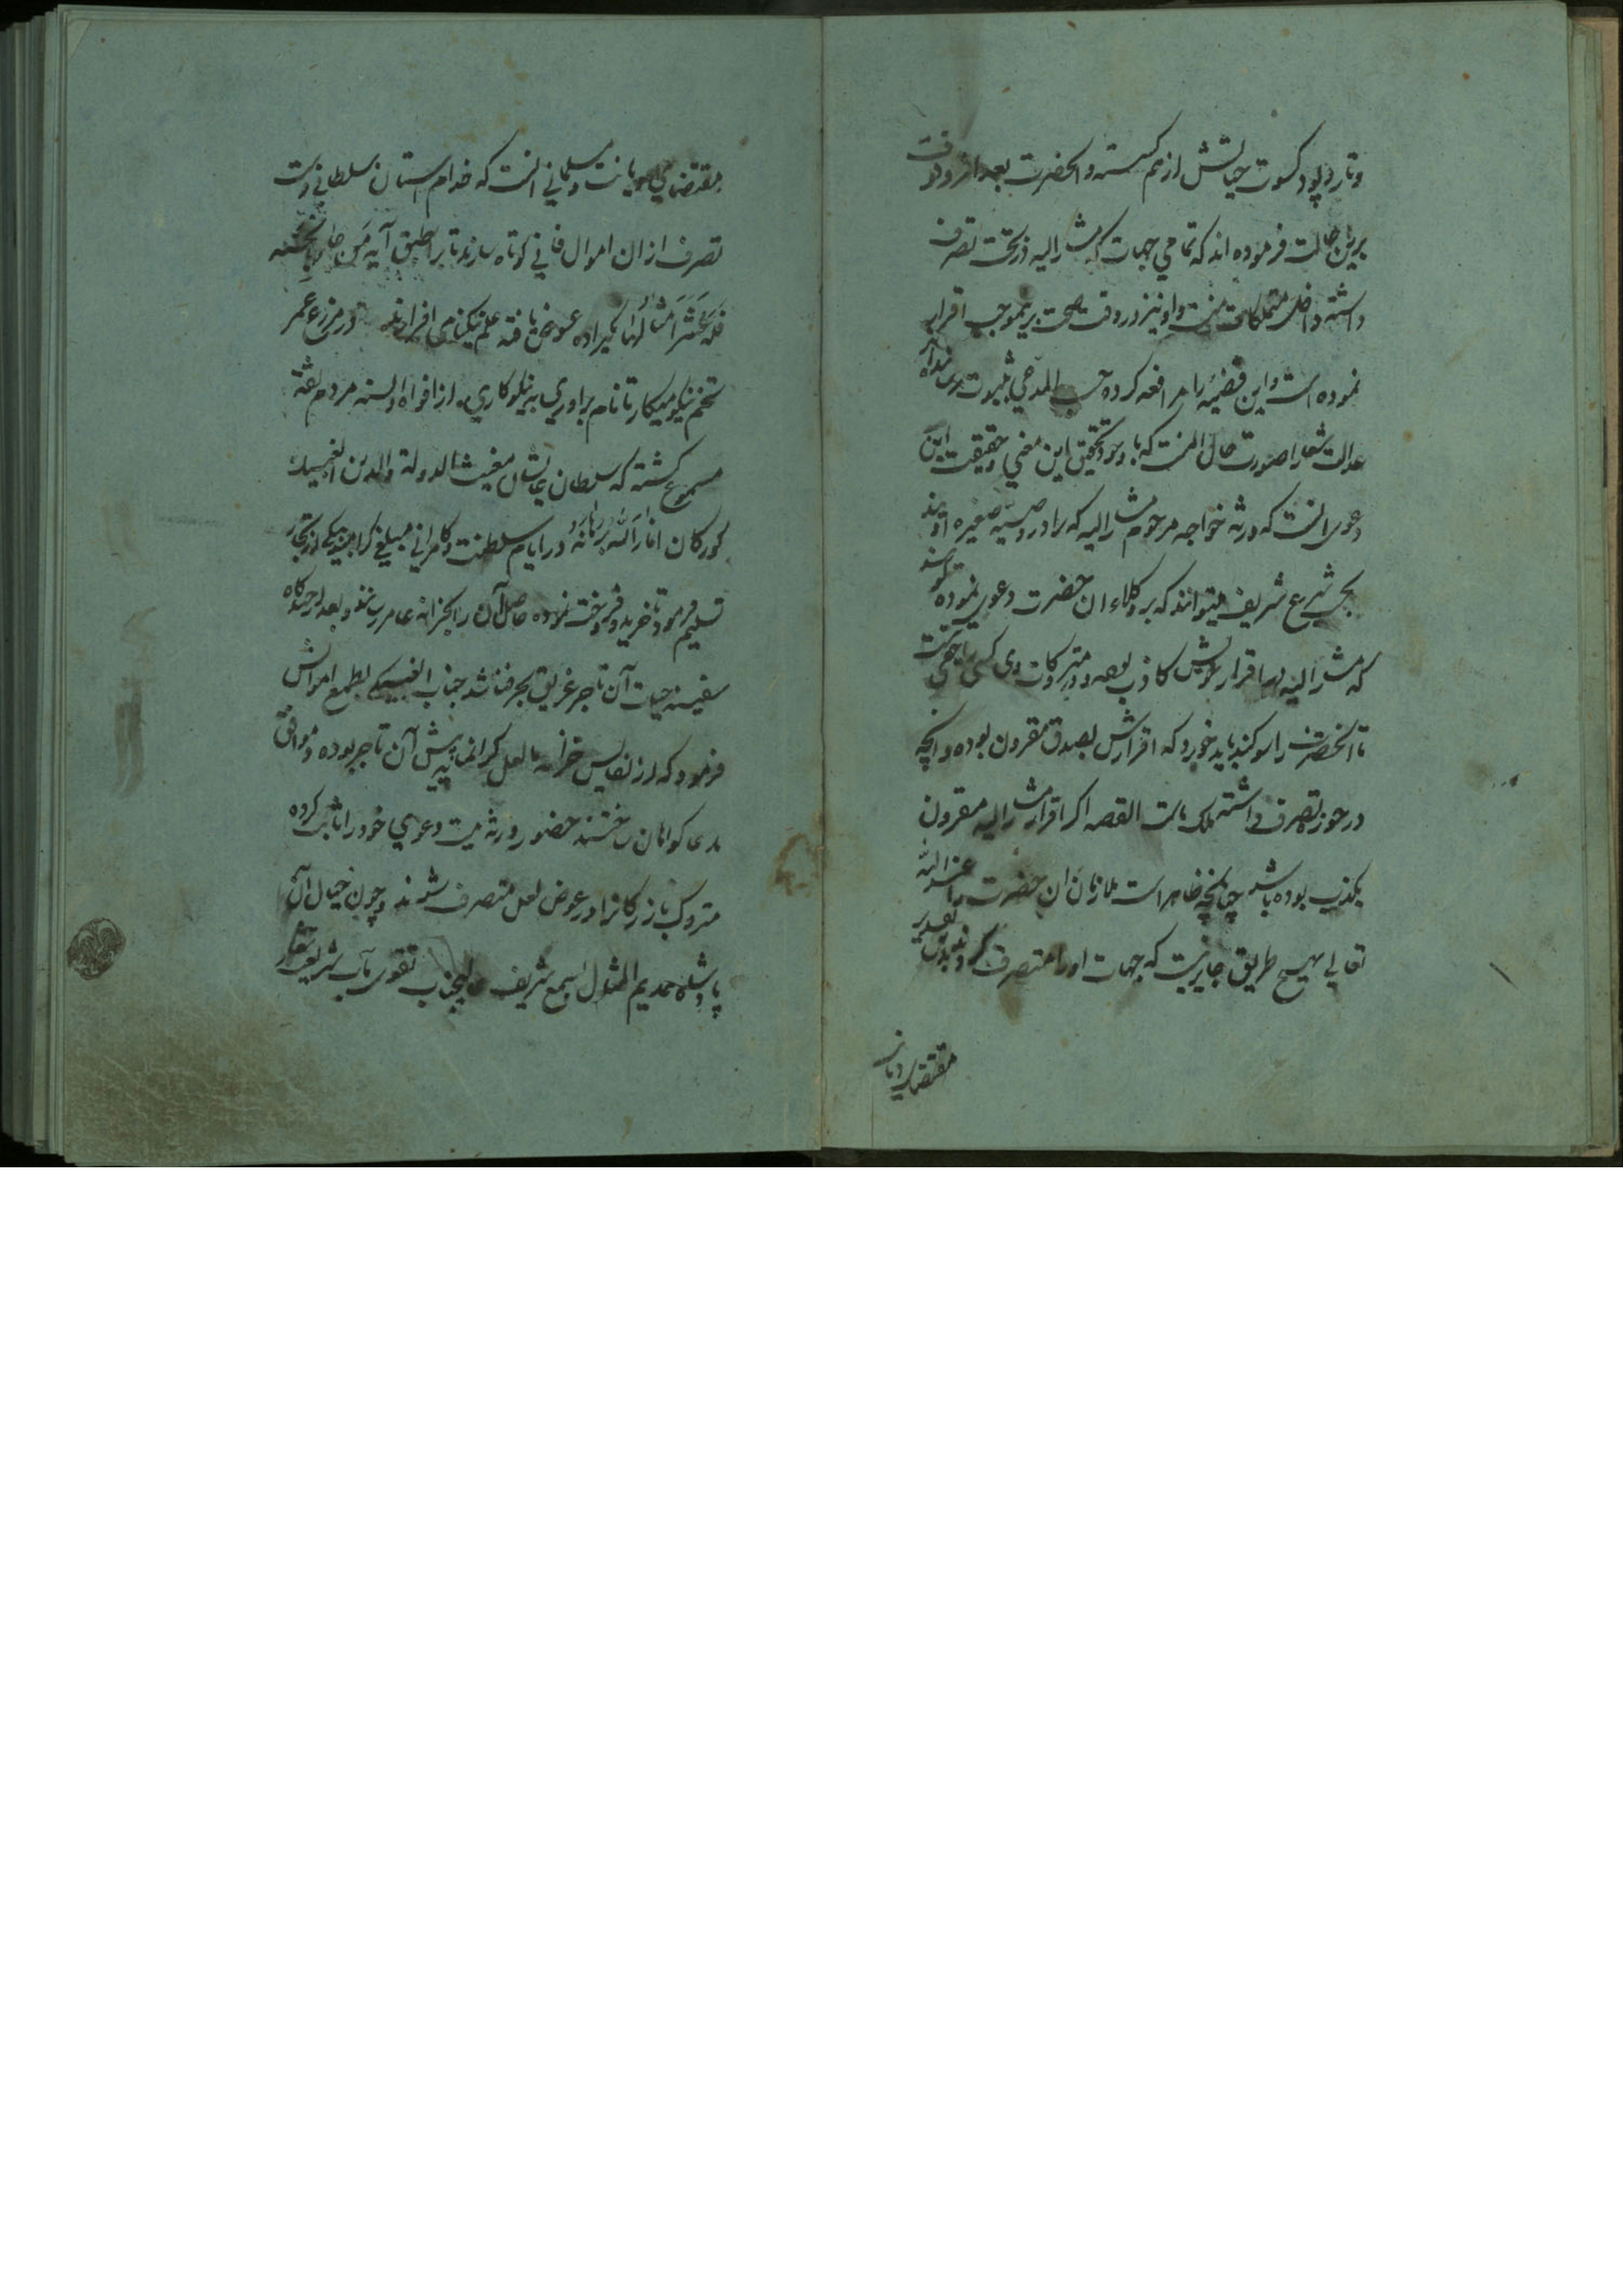 وتار و پود کسوت حیاتش از هم کسسته و آنحضرت بعد از وقوف
برین حالت فرموده اند که تمامی جهات که مشار الیه در تحت تصرف
داشته داخل متملکات منست و او نیز در وقت صحت برینموجب اقرار
نموده است و این قضیه را مرافعه کرده حسب المدعی بثبوت رسانیده
عدالت شعارا صورت حال آنست که با وجود تحقیق این معنی و حقیقت این
دعوی آنست که ورثه خواجه مرحوم مشار الیه که برادر و صبیه صغیره اویند
بحسب شرع شریف میتوانند که بر وکلاء ان حضرت دعوی نموده
که مشار الیه در اقرار خویش کاذب بوده و در متروکات وی کسی را حقی نیست
تا آنحضرت را سوکند باید خورد که اقرارش بصدق مقرون بوده و آنچه
در حوزه تصرف داشته ملک ماست القصه اکر اقرار مشار الیه مقرون
بکذب بوده باشد چنانچه ظاهر است ملازمان ان حضرت را عند الله
تعالی بهیچ طریق جایز نیست که جهات او را متصرف کردند
مقتضای دیانت
مقتضای دیانت و مسلمانی آنست که خدام آستان سلطانی دست
تصرف از ان اموال فانی کوتاه سازند تا بر طبق آیه مَن جاء بالحسنه
فله عشر امثالها عوض یافته علم نیکنامی افرازند در مزرع عمر
تخم نیکو میکار تا نام براوری به نیکوکاری از افواه و السنه مردم ثقه
مسموع کشته که سلطان عالیشان مغیث الدوله والدین الغبیک
کورکان انار الله برهانه در ایام سلطنت و کامرانی مبلغی کرامند بیکی از تجار
تسلیم فرمود تا خرید و فروخت نموده حاصل آن را بخزانه عامره رساند و بعد از چندکاه
سفینه حیات آن تاجر غریق بحر فنا شد جناب الغبیک بطمع اموالش
فرمود که از نفایس خزانه ما لعل کرانمایه پیش آن تاجر بوده و موافق
مدعا کواهان ساختند حضور ورثه میت دعوی خود را ثابت کرده
متروک بازرکانرا در عوض لعل متصرف شوند و چون خیال آن
پادشاه عدیم المثال بسمع شریف عالیجناب تقوی مآب شریعت شعار